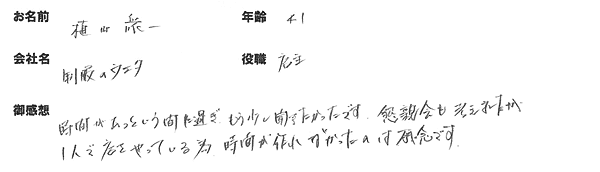 お名前 植田 衆一 年齢 41
会社名 制服のタニタ 役職 店主
御感想
時間があっという間に過ぎ、もう少し聞きたかったです。懇親会も
1人で店をやっている為、時間が作れなかったのは残念です。